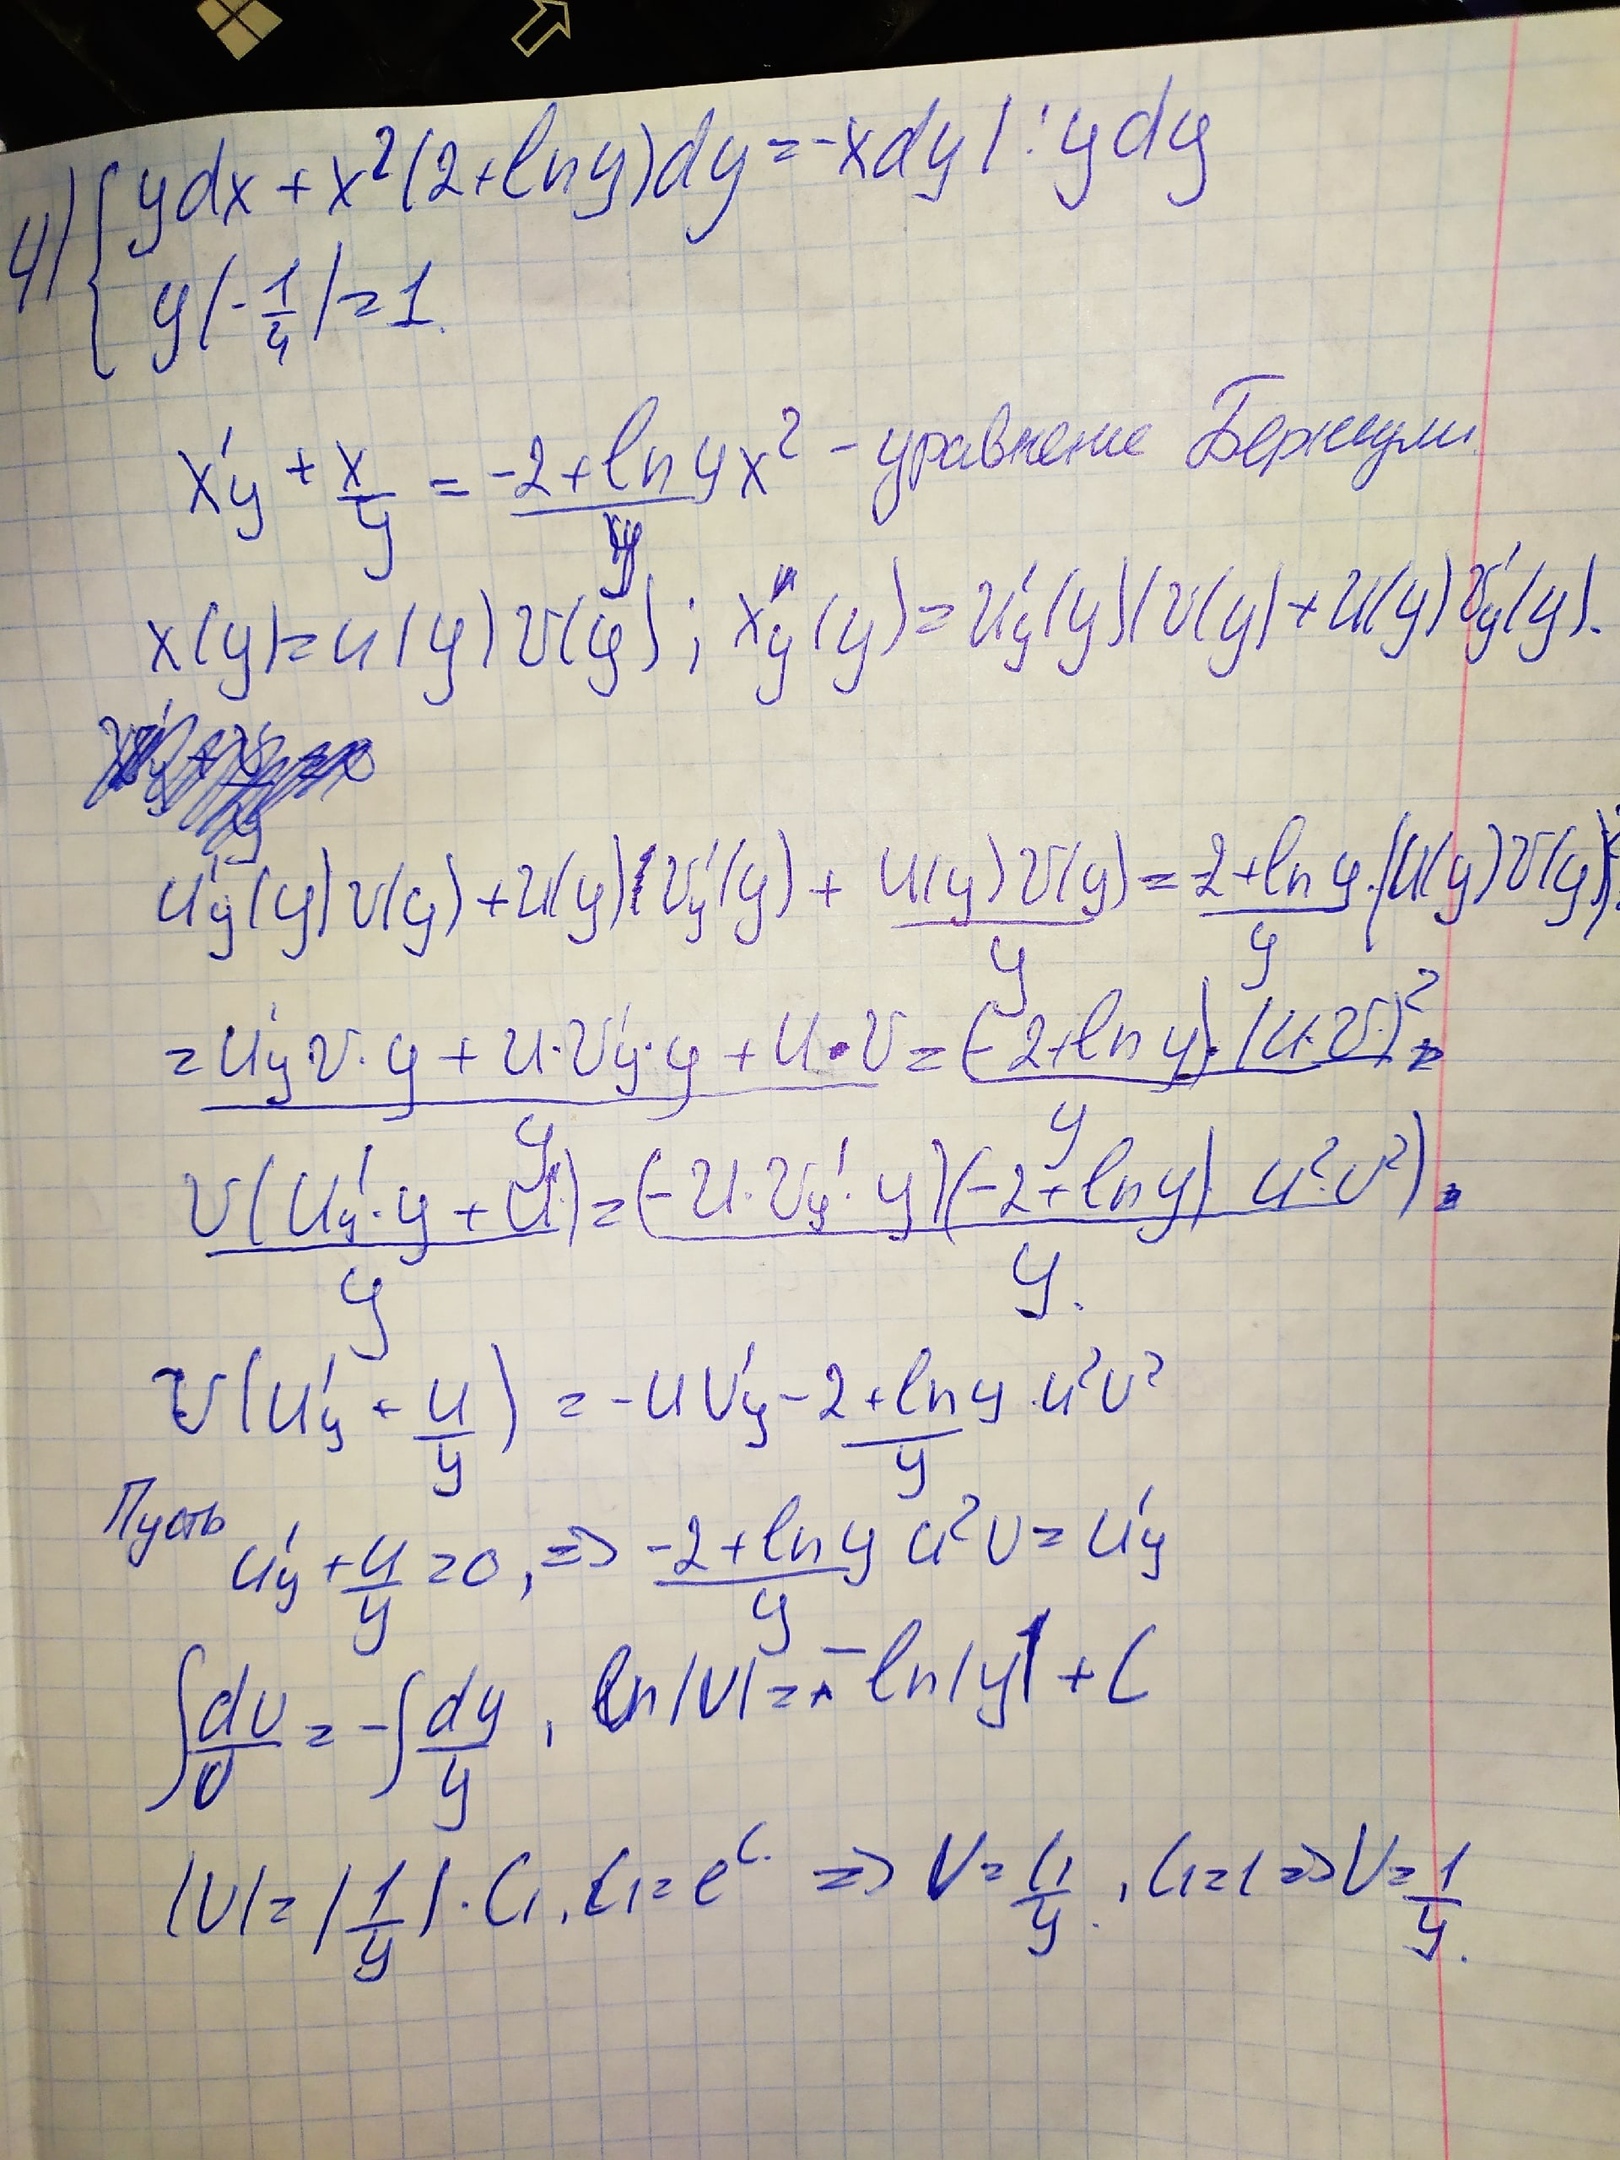 4) { ydx + x²(2+lny)dy = -xdy | : ydy
y(-1/4) = 1.
x'y + x/y = -2+lny/y x² - уравнение Бернули.
x(y) = u(y)v(y); x'y(y) = u'y(y)(v(y) + u(y)v'y(y).
u'y(y)v(y) + u(y)v'y(y) + u(y)v(y)/y = 2+lny/y · (u(y)v(y))².
= u'y v·y + u·v'y·y + u·v/y = (-2+lny)·(u·v)²/y =
v(u'y·y + u)/y = (-u·v'y·y)(-2+lny)·u²v²)/y.
v(u'y + u/y) = -uv'y - 2+lny/y · u²v²
Пусть u'y + u/y = 0, => -2+lny/y u²v = u'y
∫dv/v = -∫dy/y, ln|v| = -ln|y| + C
|v| = |1/y|·C₁, C₁ = e^C. => v = C₁/y, C₁=1 => v = 1/y.